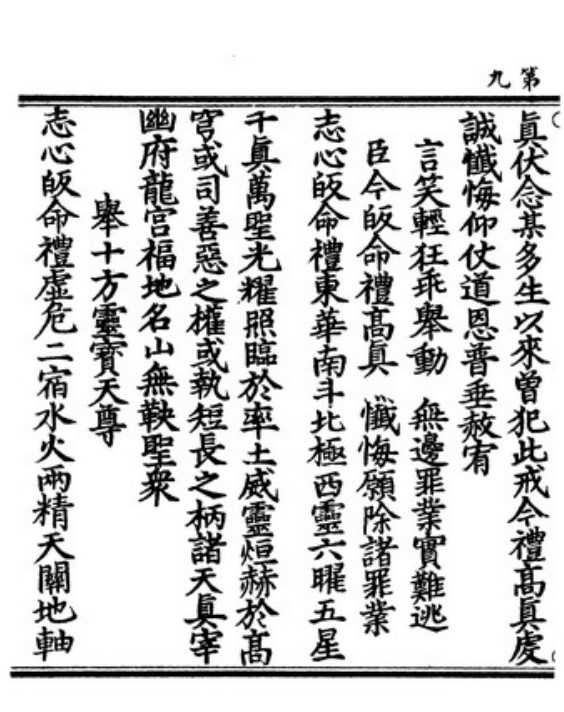 第九
眞伏念某多生以來曾犯此戒今禮髙眞虔
誠懺悔仰仗道恩普垂赦宥
言笑輕狂乖舉動　無邊罪業實難逃
臣今皈命禮髙眞　懺悔願除諸罪業
志心皈命禮東華南斗北極西靈六曜五星
千眞萬聖光耀照臨於率土威靈烜赫於髙
穹或司善惡之權或執短長之柄諸天眞宰
幽府龍宫福地名山無鞅聖衆
舉十方靈寳天尊
志心皈命禮虚危二宿水火兩精天關地軸